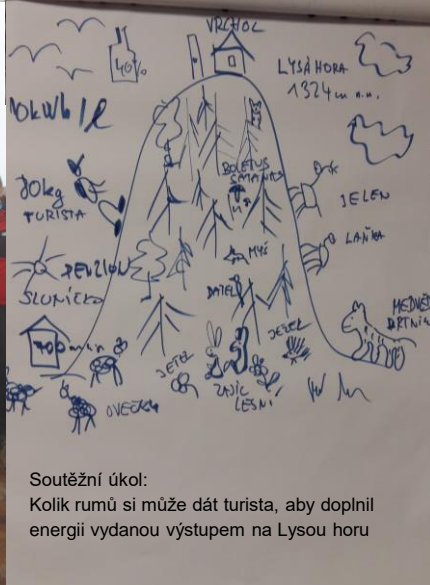 VRCHOL
40%
LYSÁ HORA
1324 m n.m.
10kWh/l
BOLETUS
SATANAS
70kg
TURISTA
JELEN
LAŇKA
MYŠ
PENZION
SLUNÍČKO
DATEL
MEDVĚD
BRTNÍK
700 m n.m.
JEŽEK
JETEL
ZAJÍC
LESNÍ
OVEČKY
Soutěžní úkol:
Kolik rumů si může dát turista, aby doplnil
energii vydanou výstupem na Lysou horu